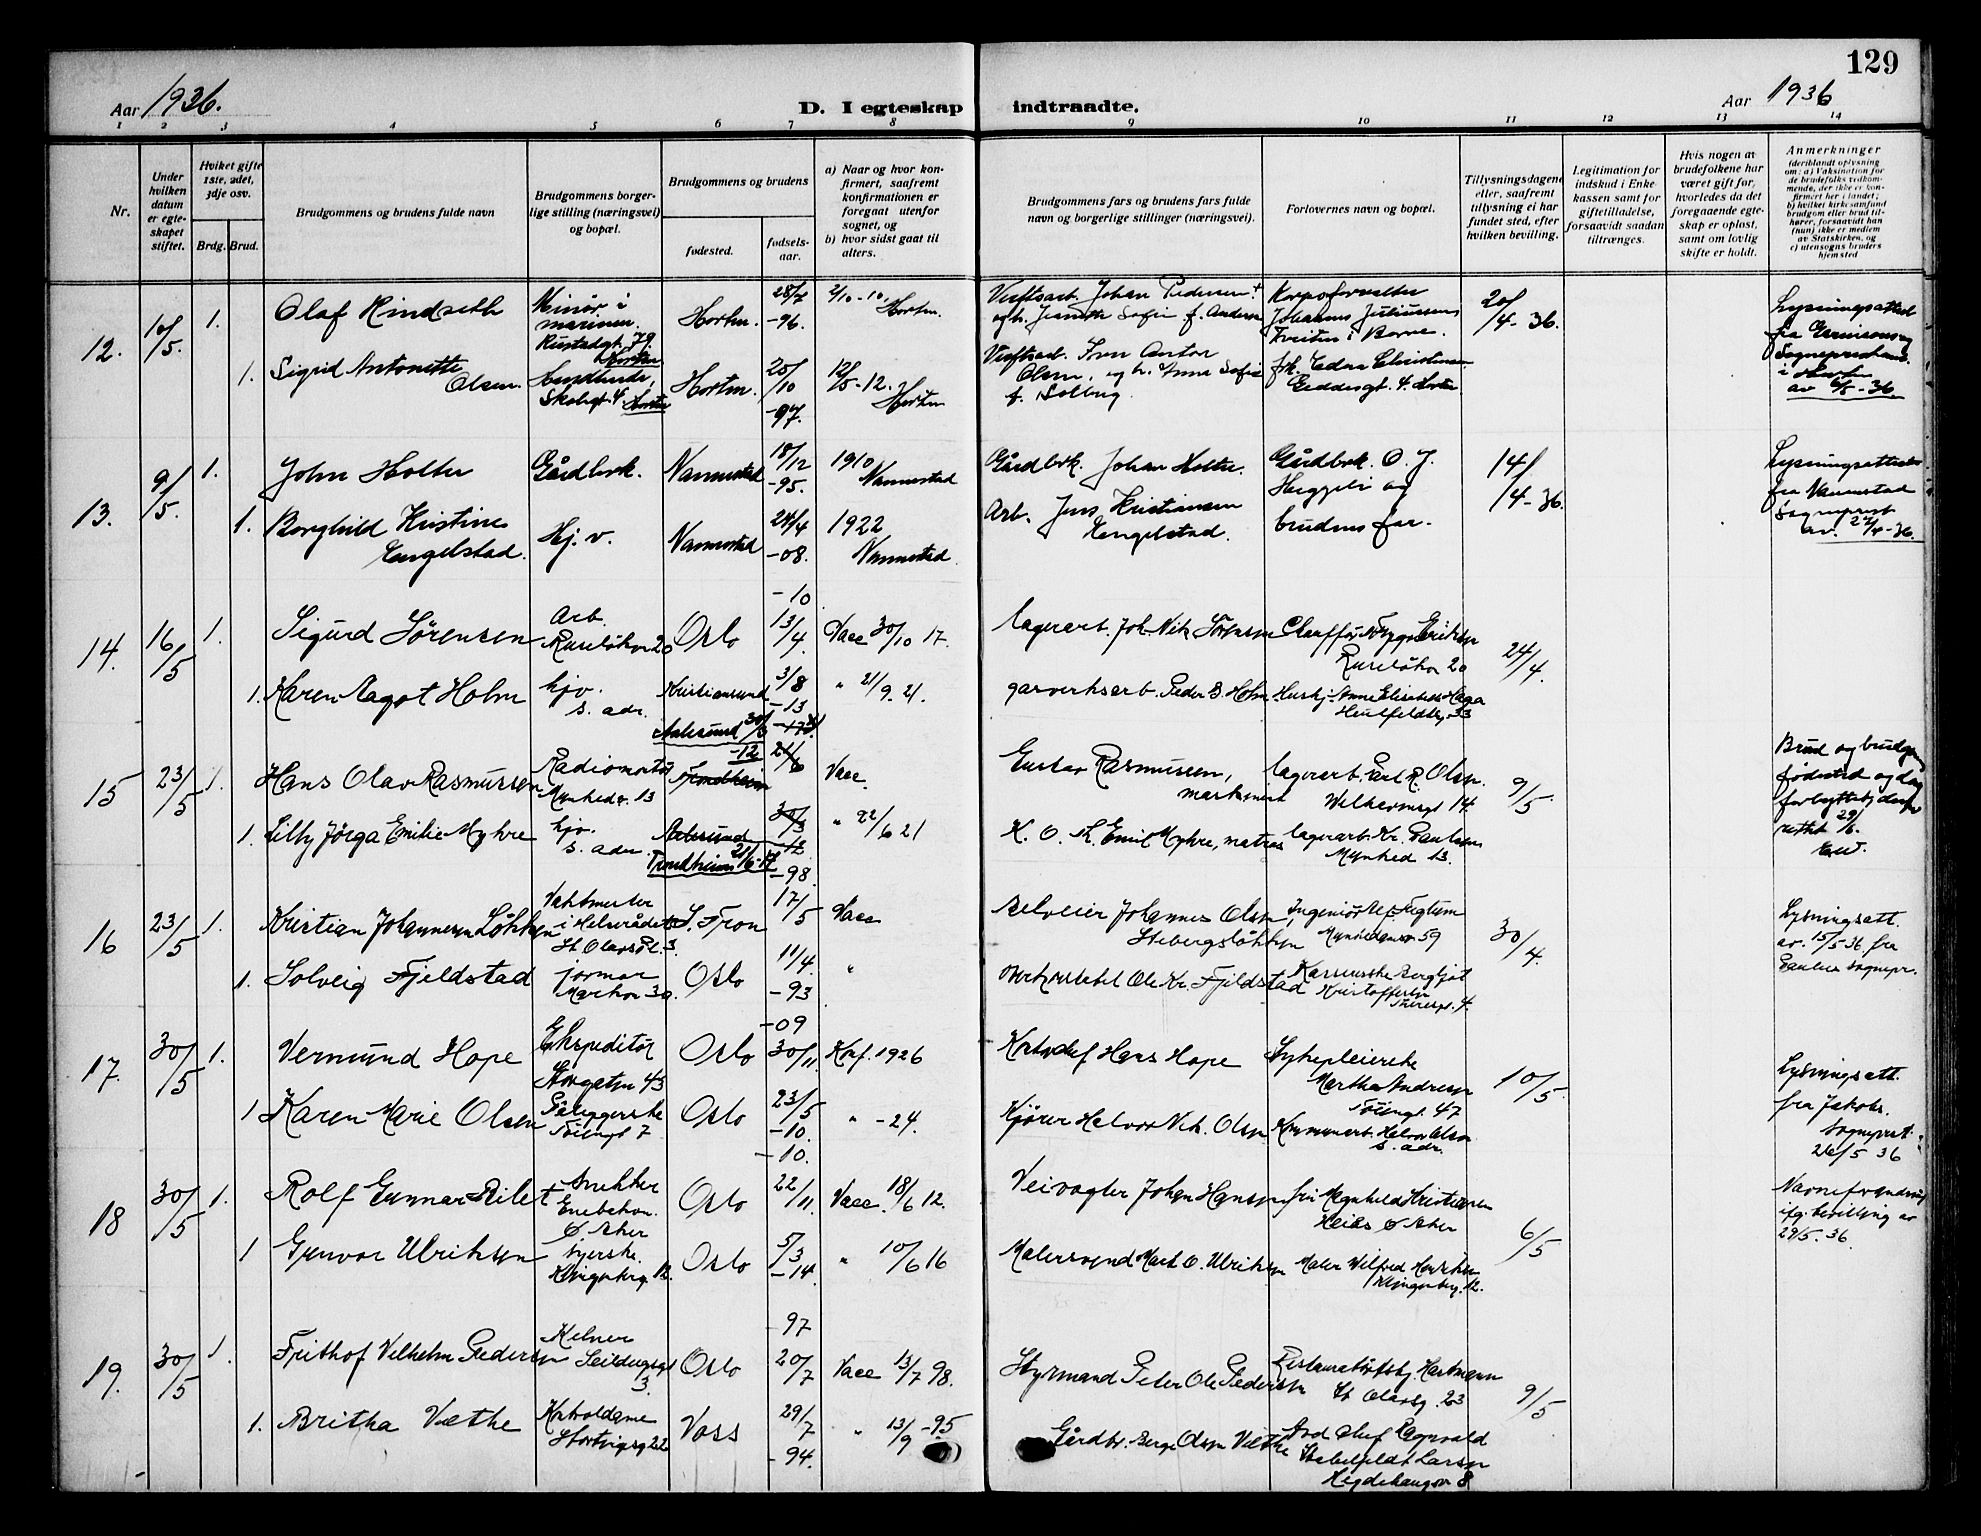 129
Aar 1936.
D. I egteskap indtraadte.
Aar 1936
1 2 3 4 5 6 7 8 9 10 11 12 13 14
Nr.
Under hvilken datum er egte-skapet stiftet.
Hviket gifte 1ste, 2det, 3dje osv.
Brdg. Brud.
Brudgommens og brudens fulde navn
Brudgommens borger-lige stilling (næringsvei) og bopæl.
Brudgommens og brudens
fødested.
fødsels-aar.
a) Naar og hvor kon-firmert, saafremt konfirmationen er foregaat utenfor sognet, og
b) hvor sidst gaat til alters.
Brudgommens fars og brudens fars fulde navn og borgerlige stillinger (næringsvei).
Forlovernes navn og bopæl.
Tillysningsdagene eller, saafremt tillysning ei har fundet sted, efter hvilken bevilling.
Legitimation for indskud i Enke-kassen samt for giftetilladelse, forsaavidt saadan tiltrænges.
Hvis nogen av brudefolkene har været gift før, hvorledes da det foregaaende egte-skap er opløst, samt om lovlig skifte er holdt.
Anmerkninger
(deriblandt oplysning om: a) Vaksination for de brudefolks vedkom-mende, der ikke er kon-firmert her i landet; b) hvilket kirkesamfund brudgom eller brud til-hører, forsaavidt han (hun) ikke er medlem av Statskirken, og c) utensogns bruders hjemsted
12. 10/5. 1. Olaf Rindseth
Minør i marinen. Rustadgt. 79. Horten
Horten. 28/7 -96.
2/10-10. Horten.
Verftsarb. Johan Pedersen
Johannes Juliussen
20/4-36.
1. Sigrid Antonette Olsen.
Skolegt. 4 Horten
Horten. 20/10 -97.
12/5-12. Horten
Verftsarb. Anton Olsen, og h. Anna Sofie f. Solberg
frk. Edna Christensen Geddesgt. 4. Horten
Lysningsattest fra Garnisons Sogneprestembede i Horten av 6/5-36.
13. 9/5. 1. John Holter
Gårdbrk. Nannestad 18/12 -95.
1910 Nannestad
Gårdbrk. Johan Holter.
Gårdbrk. O. J. og brudens far.
14/4-36.
1. Borghild Kristine Engelstad.
Hj. v. Nannestad 24/4 -08.
1922 Nannestad
Arb. Jens Kristiansen Engelstad.
Lysningsattest fra Nannestad Sogneprest av. 22/4-36.
14. 16/5 1. Sigurd Sørensen
Arb. Ruseløkvn 20 Oslo -10 13/4.
Vacc 30/10 17.
lagerarb. Joh. Nik. Sørensen
Chauffør Trygve Eriksen Ruseløkvn 20
24/4.
1. Karen Aagot Holm
hjv. s. adr. Kristiansund 3/8 -13
" 21/9. 21.
garverksarb. Peder B. Holm
Hushj. Anne Elisabeth Haga Huitfeldtsg. 33
15 23/5 1. Hans Olav Rasmussen
Radiomontør Munkedv. 13
Aalesund 30/3 -12
Trondheim 21/6
Vacc.
Gustav Rasmussen,
lagerarb. Paul R. Olsen. Wilhelmsgt 14.
9/5.
1. Lilly Jörga Emilie Myhre
hjv. s. adr. Aalesund 30/3 -12
Trondheim 21/6-17
" 22/6 21
K. O. M. Emil Myhre, matros
lagerarb. Kr. Paulsen Munked 13.
Brud og brudgom fødested og dag forbyttet, derfor rettet 29/6.
16 23/5 1. Kristian Johannesen Løkken
Vaktmester i Helserådet St. Olavs Pl. 3
S. Fron -98. 17/5
Vacc
Selveier Johannes Olsen Stebergsløkken
Ingeniør Munkedamsv 59
30/4.
1. Solveig Fjeldstad
jormor Markvn 30.
Oslo 11/4. -93
"
Ole Kr. Fjeldstad
Bergljot Kristoffersen
Lysningsatt. av. 15/5 36 fra Paulus sognepr.
17. 30/5 1. Vermund Hope
Ekspeditør Storgaten 43
Oslo -09 30/11.
Konf. 1926
Hans Hope
Sykepleierske Martha Andresen Töiengt. 47
10/5.
1 Karen Marie Olsen
Pålæggerske Töiengt 7.
Oslo 23/5 -10.
" -24.
Kjører Halvor Nik. Olsen
Kommunearb. Halvor Olsen s. adr.
Lysningsatt. fra Jakobs. Sogneprest 26/5 36
18 30/5 1. Rolf Gunnar Rilet
Snekker Enebakvn. Ø. Aker
Oslo -10. 22/11.
Vacc. 18/6 12.
Veivogter Johan Hansen
fru Magnhild Kristiansen Ø Aker
6/5
1 Gunvor Ulriksen
syerske Klingenberg 12.
Oslo 5/3 -14.
" 10/6 16
Malersvend Mart. O. Ulriksen
Maler Wilfred Klingenberg. 12.
Navneforandring ifg. bevilling av 29/5. 36.
19. 30/5 1. Frithof Vilhelm Pedersen
Kelner Seildugsgt 3.
Oslo -97 20/7
Vacc 13/7 98.
Styrmand Peter Ole Pedersen
Hartmann St Olavsg. 23
9/5
1. Britha Vethe
Koldame Stortingsg 22
Voss 29/7 -94.
" 13/9 -95
Gårdbr. Berge Olsen Vethe
Ragnvald Stabelfeldt Larsen Hegdehaugsv 8